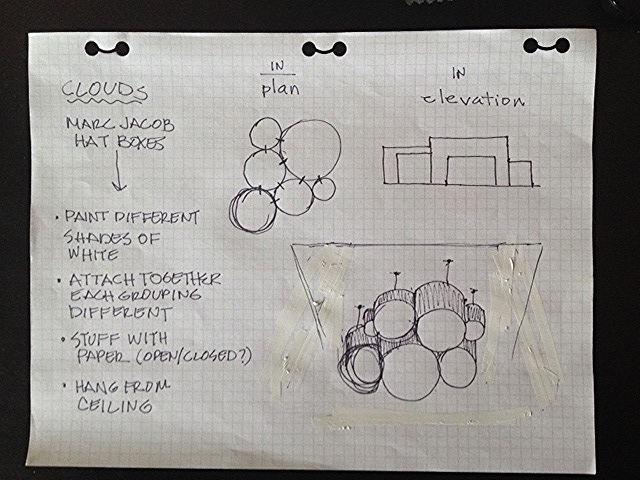 CLOUDS
MARC JACOB
HAT BOXES
• PAINT DIFFERENT
SHADES OF
WHITE
• ATTACH TOGETHER
EACH GROUPING
DIFFERENT
• STUFF WITH
PAPER (OPEN/CLOSED?)
• HANG FROM
CEILING
IN
plan
IN
elevation